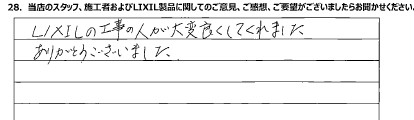 28. 当店のスタッフ、施工者およびLIXIL製品に関してのご意見、ご感想、ご要望がございましたらお聞かせください。
LIXILの工事の人が大変良くしてくれました
ありがとうございました。